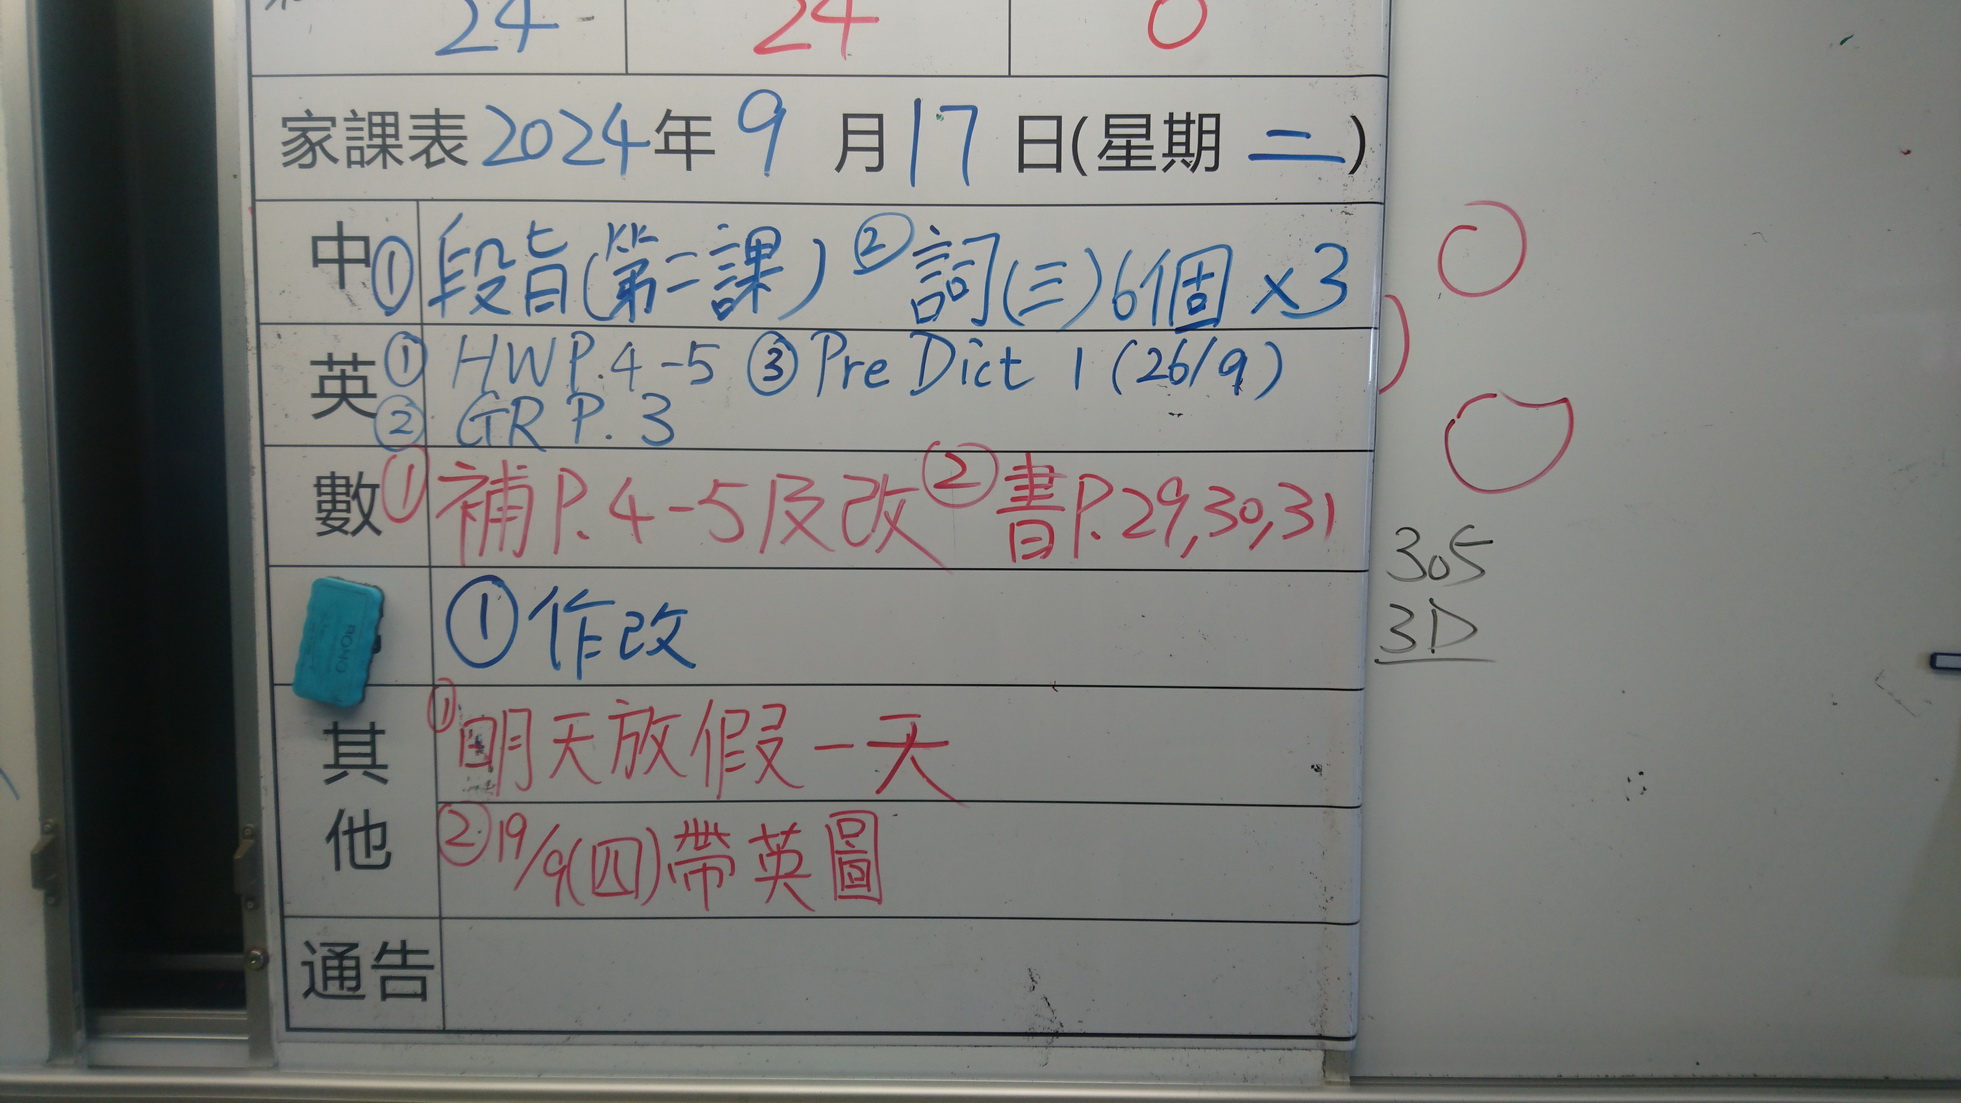 24 24 0
家課表2024年 9 月 17 日(星期 二)
中 ①段旨(第二課) ②詞(三)6個 x3
英 ① HW P.4-5 ③ Pre Dict 1 (26/9)
② GR P. 3
數 ①補P.4-5及改 ②書P.29,30,31
305
3D
①作改
其他 ①明天放假一天
②19/9(四)帶英圖
通告